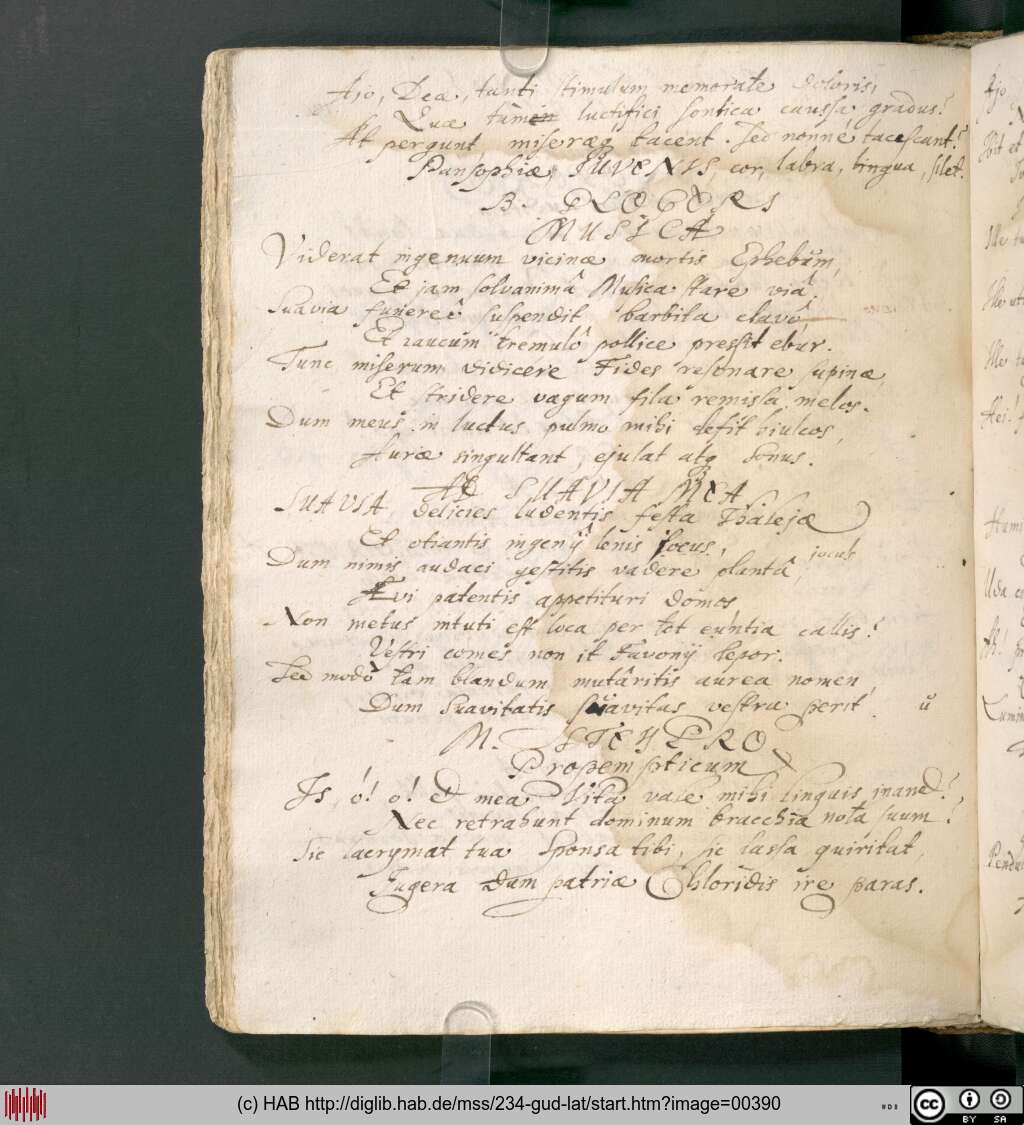 Ajo, Dea, tanti stimulum memorate doloris,
Quæ tamen luctifici sontica caussa gradus?
At pergunt miseræq tacent. Sed nonne tacescant?
Pansophiæ, JUVENIS, cor, labra, lingua, silet.
MUSICA
Viderat ingenuum vicinæ mortis Ephebum,
Et jam solvanimâ Musica stare viâ.
Suavia funereô suspendit barbita clavô,
Et raucum tremulô pollice pressit ebur.
Tunc miserum didicere Fides resonare supinæ,
Et stridere vagum fila remissa melos.
Dum meus in luctus pulmo mihi desit hiulcos,
Auræ singultant, ejulat atq sonus.
AD SUAVIA MEA
SUAVIA, delicies ludentis festa Thalejæ
Et otiantis ingenij lenis jocus,
jocus
Dum nimis audaci gestitis vadere plantâ,
Ævi patentis appetituri domos,
Non metus mtuti est loca per tot euntia callis?
Vestri comes non it Favonij lepor.
Sed modò tam blandum mutâritis aurea nomen,
Dum Suavitatis suavitas vestra perit.
ü
Propempticum
Is, ó! o! et mea Vita vale mihi linquis inane?
Nec retrahunt dominum bracchia nota suum?
Sic lacrymat tua Sponsa tibi, sic lassa quiritat,
Jugera dum patriæ Chloridis ire paras.
(c) HAB http://diglib.hab.de/mss/234-gud-lat/start.htm?image=00390
cc BY SA